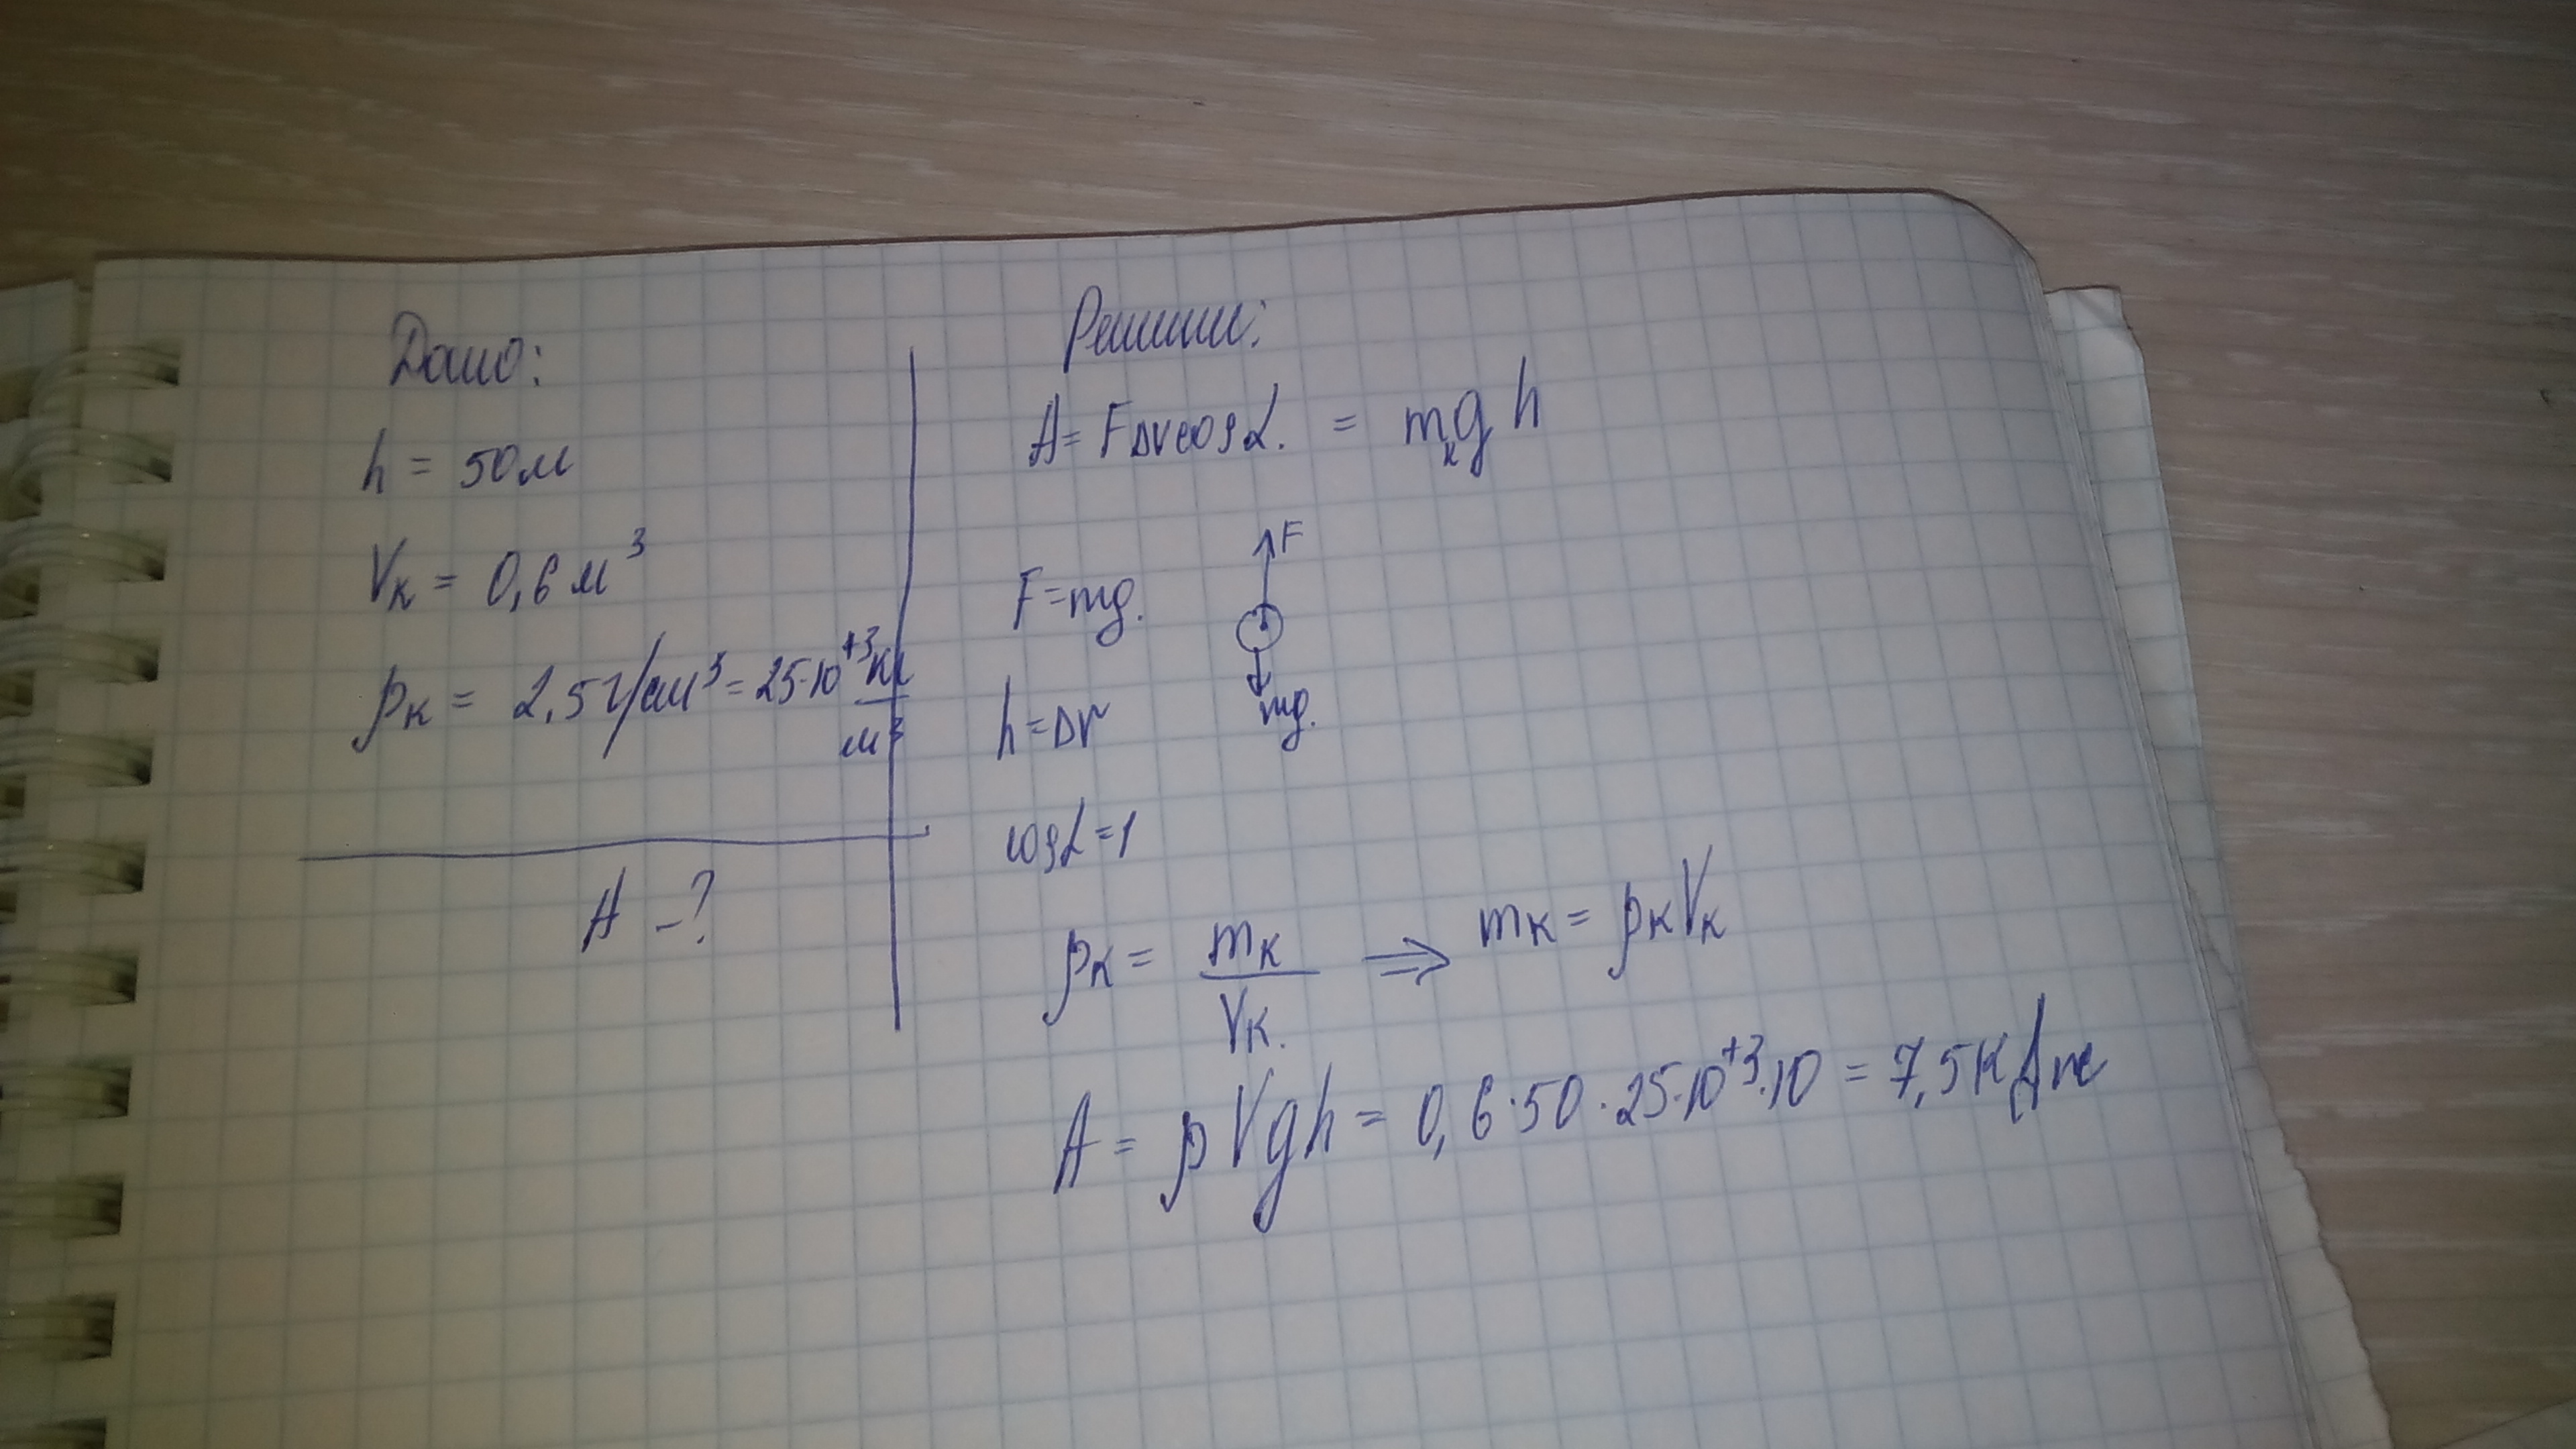 Дано:
h = 50м
Vк = 0,6 м³
ρк = 2,5 г/см³ = 25·10⁺³ кг/м³
A – ?
Решение:
A = FΔr cos α. = mкg h
F = mg.
F
mg.
h = Δr
cos α = 1
ρк = mк/Vк. ⇒ mк = ρкVк
A = ρVgh = 0,6·50·25·10⁺³·10 = 7,5 кДж